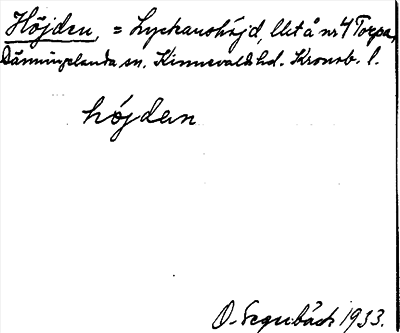 Höjden, = Lyckanshöjd, lht å nr 4 Torpa,
Dänningelanda sn. Kinnevalds hd. Kronob. l.
höjden
O. Segerbäck 1933.